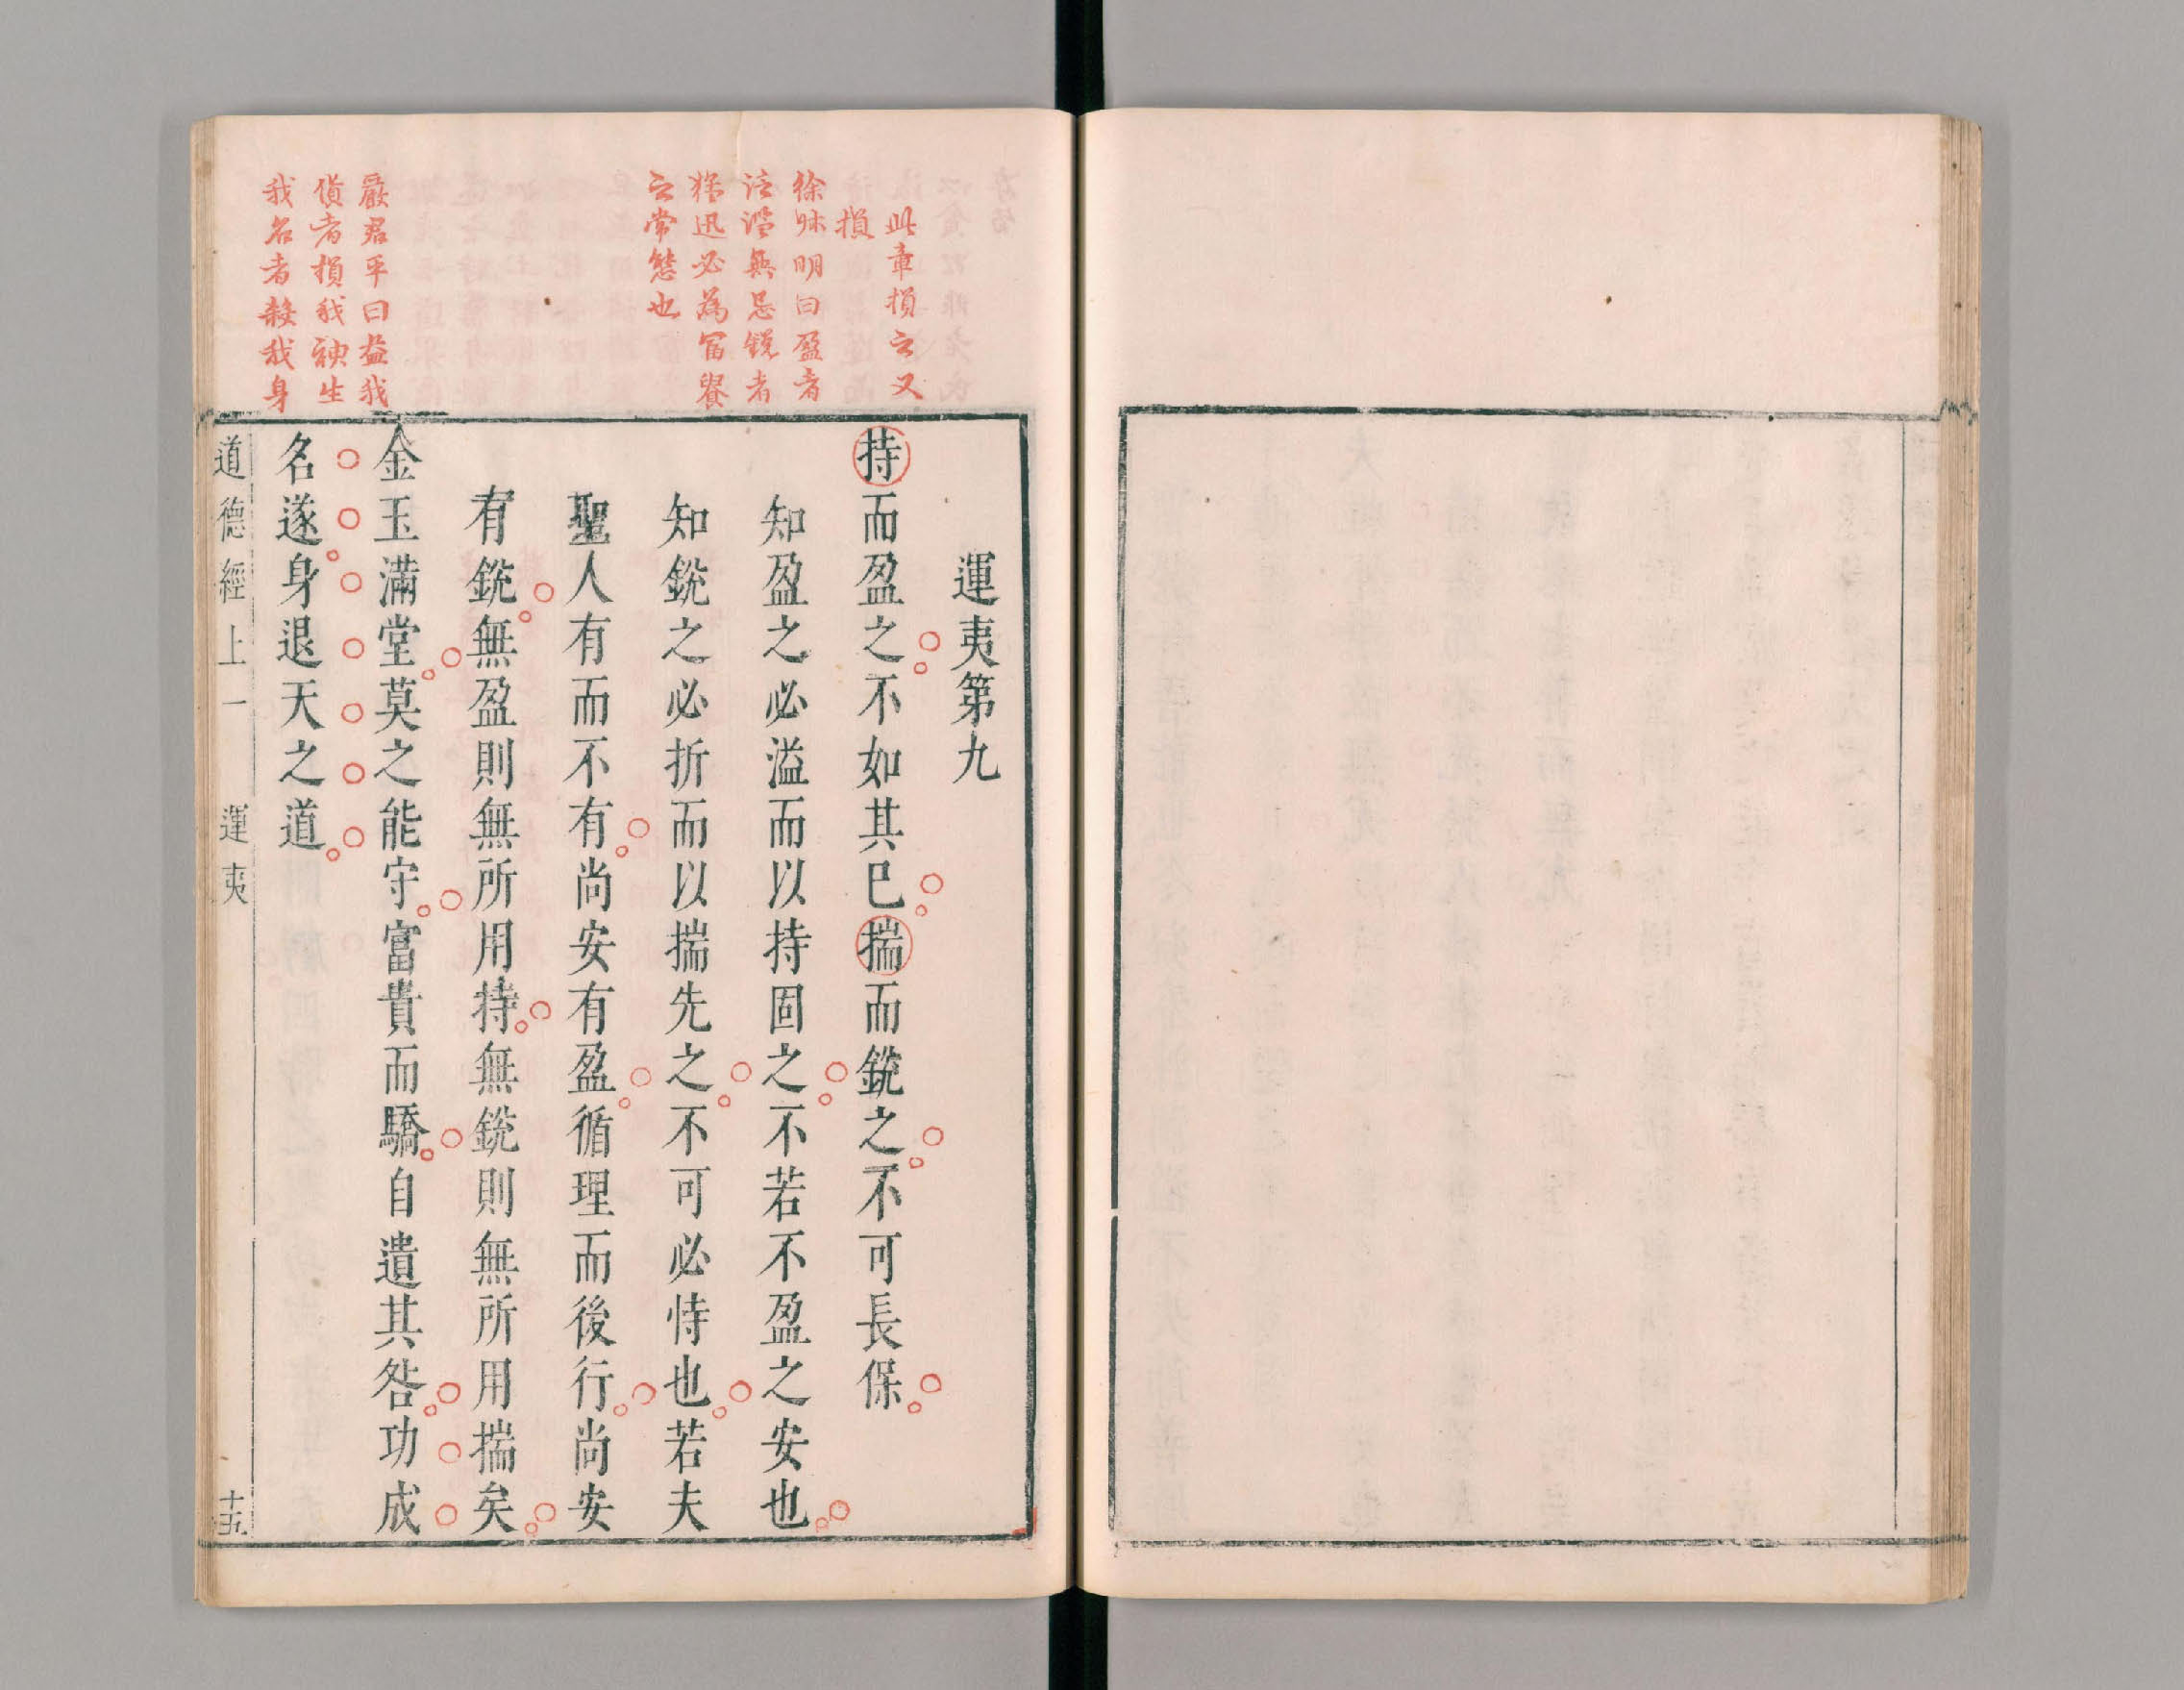 此章損之又
損
徐昧明曰盈者
泛濫無忌銳者
猛迅必為富貴
之常態也
嚴君平曰益我
貨者損我神生
我名者殺我身
運夷第九
持而盈之不如其已揣而銳之不可長保
知盈之必溢而以持固之不若不盈之安也
知銳之必折而以揣先之不可必恃也若夫
聖人有而不有尚安有盈循理而後行尚安
有銳無盈則無所用持無銳則無所用揣矣
金玉滿堂莫之能守富貴而驕自遺其咎功成
名遂身退天之道
道德經上一 運夷 十五